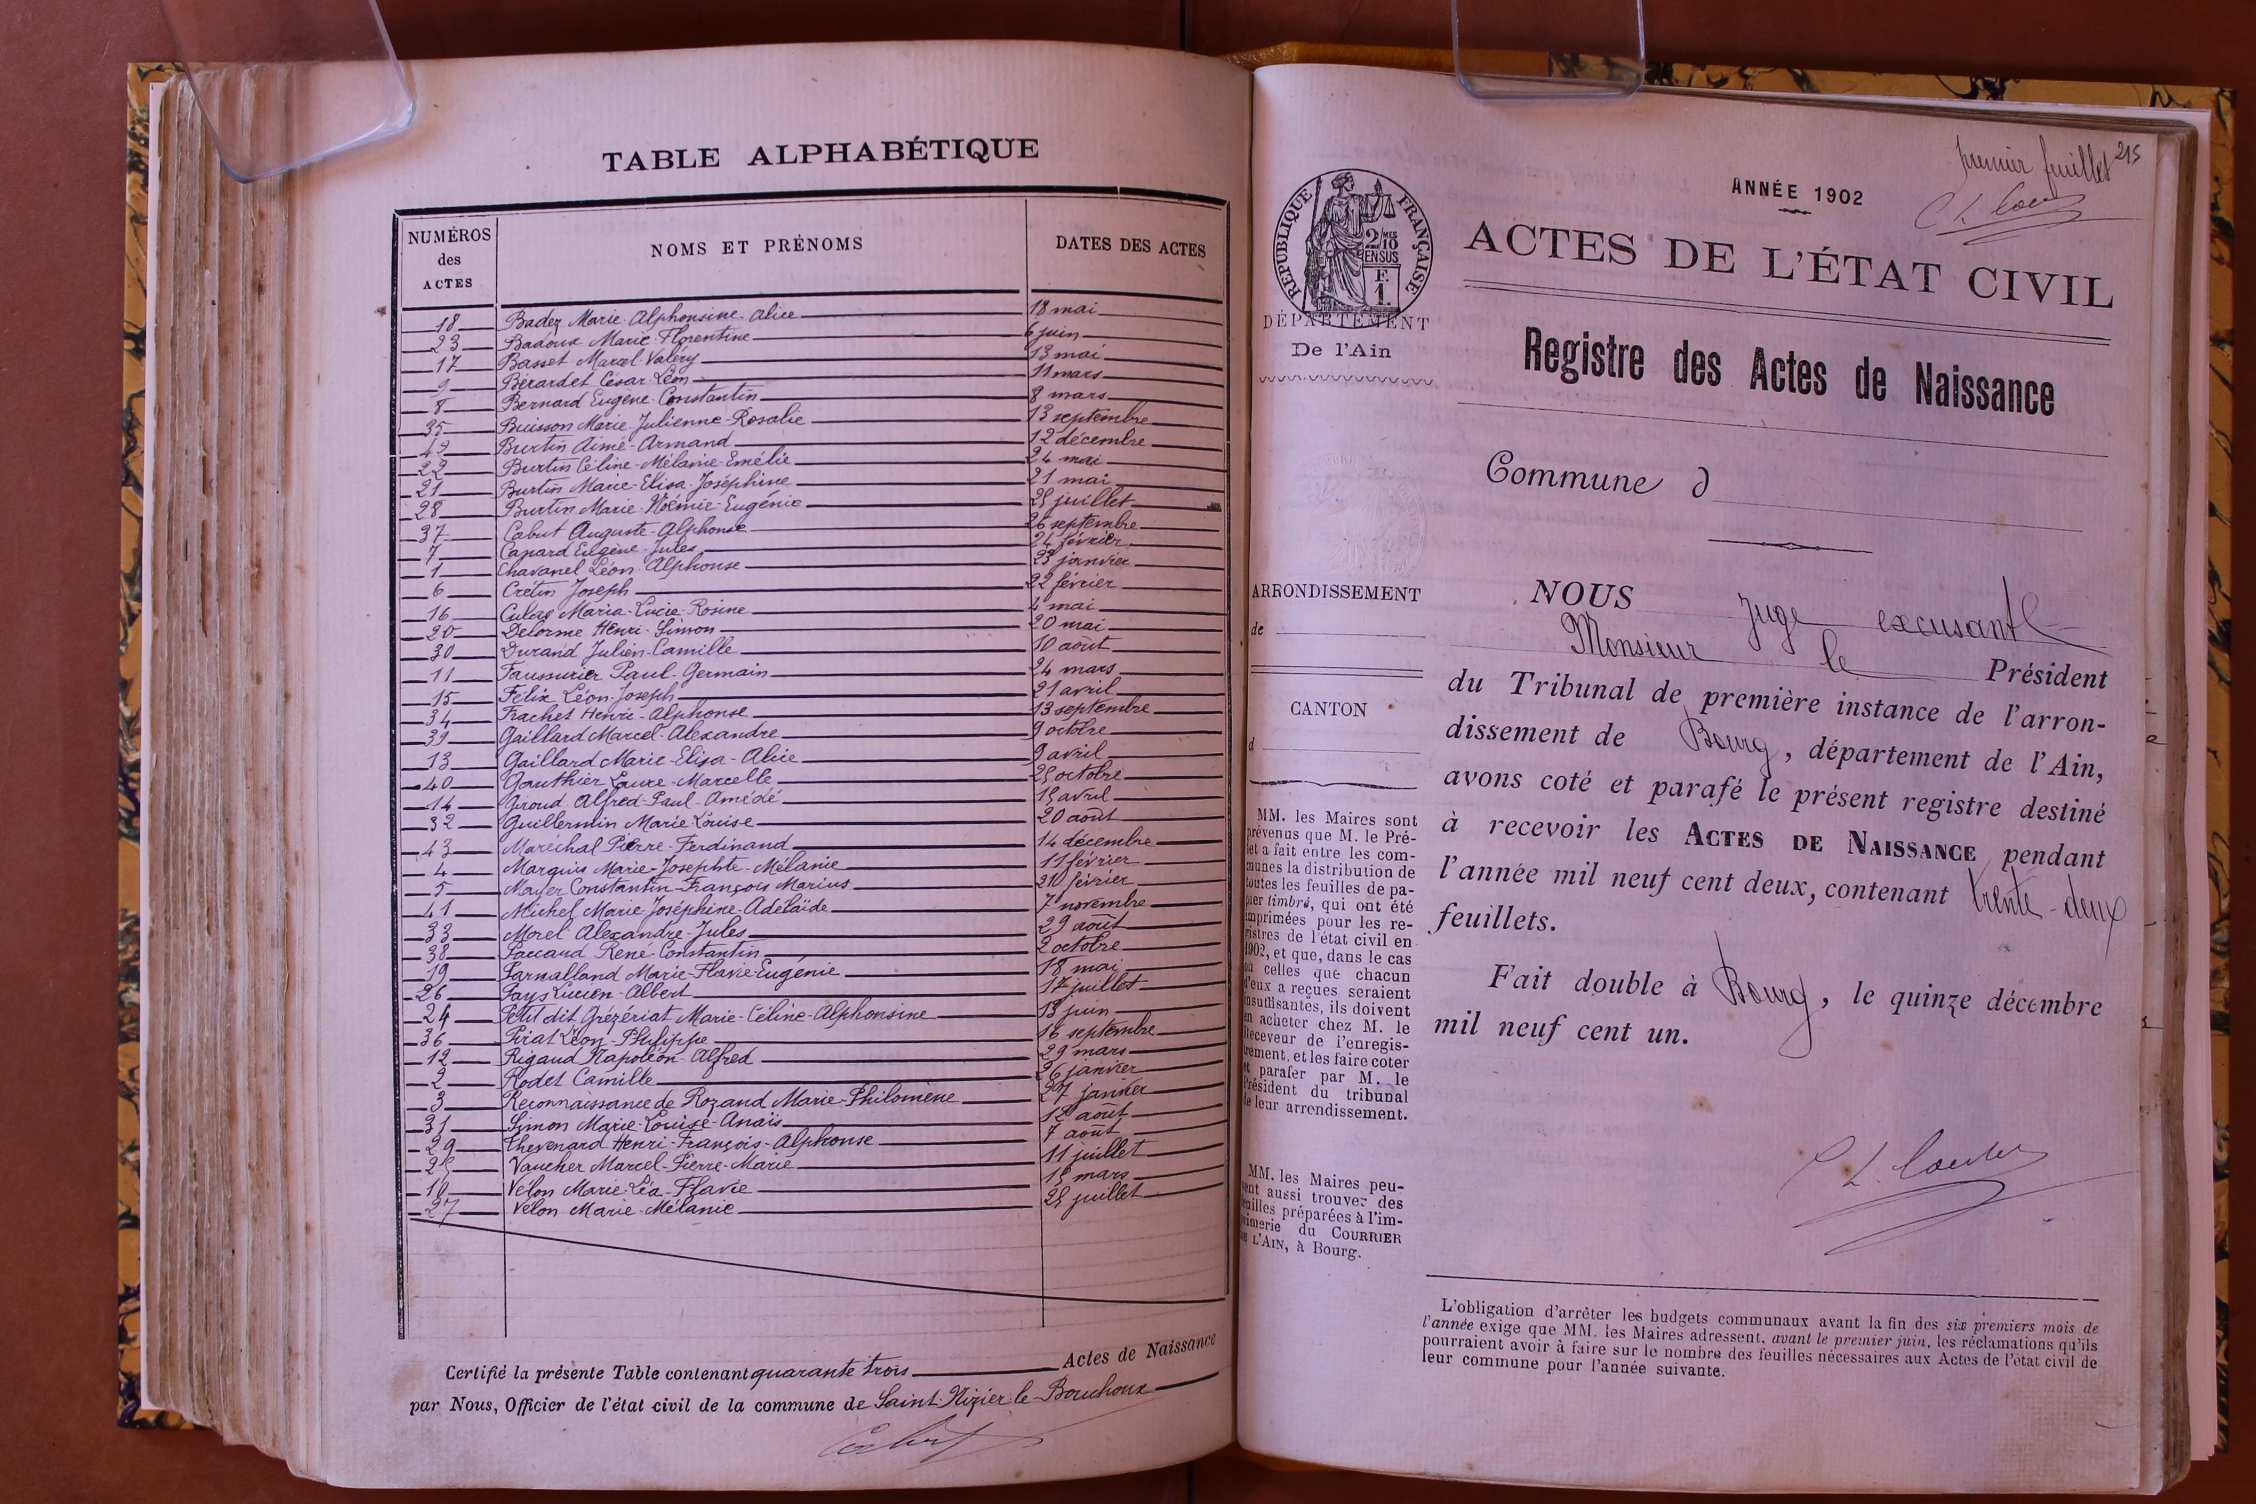 TABLE ALPHABÉTIQUE
NUMÉROS des ACTES NOMS ET PRÉNOMS DATES DES ACTES
18 Badez Marie-Alphonsine-Alice 18 mai
23 Badoux Marie-Florentine 6 juin
17 Basset Marcel-Valéry 13 mai
9 Bérardet César-Léon 11 mars
8 Bernard Eugène-Constantin 8 mars
35 Buisson Marie-Julienne-Rosalie 13 septembre
42 Burtin Aimé-Armand 12 décembre
22 Burtin Céline-Mélanie-Emélie 24 mai
21 Burtin Marie-Elisa-Joséphine 21 mai
28 Burtin Marie-Noémie-Eugénie 25 juillet
37 Cabut Auguste-Alphonse 26 septembre
7 Canard Eugène-Jules 24 février
1 Chavanel Léon-Alphonse 23 janvier
6 Crétin Joseph 22 février
16 Culas Maria-Lucie-Rosine 4 mai
20 Delorme Henri-Simon 20 mai
30 Durand Julien-Camille 10 août
11 Faussurier Paul-Germain 24 mars
15 Félix Léon-Joseph 21 avril
34 Frachet Henri-Alphonse 13 septembre
39 Gaillard Marcel-Alexandre 9 octobre
13 Gaillard Marie-Elisa-Alice 9 avril
40 Gauthier Laure-Marcelle 25 octobre
14 Giroud Alfred-Paul-Amédé 15 avril
32 Guillermin Marie-Louise 20 août
43 Maréchal Pierre-Ferdinand 14 décembre
4 Marguis Marie-Josephte-Mélanie 11 février
5 Mayer Constantin-François Marius 20 février
41 Michel Marie-Joséphine-Adélaïde 7 novembre
33 Morel Alexandre-Jules 29 août
38 Paccaud René-Constantin 2 octobre
19 Parnalland Marie-Flavie-Eugénie 18 mai
26 Pays Lucien-Albert 17 juillet
24 Petit dit Grézériat Marie-Céline-Alphonsine 13 juin
36 Pirat Léon-Philippe 16 septembre
12 Rigaud Napoléon-Alfred 29 mars
2 Rodet Camille 26 janvier
3 Reconnaissance de Rozand Marie-Philomène 27 janvier
31 Simon Marie-Louise-Anaïs 12 août
29 Thevenard Henri-François-Alphonse 7 août
25 Vaucher Marcel-Pierre-Marie 11 juillet
10 Vélon Marie-Léa-Flavie 15 mars
27 Vélon Marie-Mélanie 25 juillet
Certifié la présente Table contenant quarante trois Actes de Naissance
par Nous, Officier de l'état civil de la commune de Saint-Nizier-le-Bouchoux
premier feuillet 215
ANNÉE 1902
RÉPUBLIQUE FRANÇAISE
2/10 MES
EN SUS
F.
1.
ACTES DE L'ÉTAT CIVIL
DÉPARTEMENT
De l'Ain
Registre des Actes de Naissance
Commune d
ARRONDISSEMENT
de
CANTON
d
NOUS Juge excusant
Monsieur le Président
du Tribunal de première instance de l'arron-
dissement de Bourg, département de l'Ain,
avons coté et parafé le présent registre destiné
à recevoir les ACTES DE NAISSANCE pendant
l'année mil neuf cent deux, contenant trente-deux
feuillets.
Fait double à Bourg, le quinze décembre
mil neuf cent un.
MM. les Maires sont
prévenus que M. le Pré-
fet a fait entre les com-
munes la distribution de
toutes les feuilles de pa-
pier timbré, qui ont été
imprimées pour les re-
gistres de l'état civil en
1902, et que, dans le cas
où celles que chacun
d'eux a reçues seraient
insuffisantes, ils doivent
en acheter chez M. le
Receveur de l'enregis-
trement, et les faire coter
et parafer par M. le
Président du tribunal
de leur arrondissement.
MM. les Maires peu-
vent aussi trouver des
feuilles préparées à l'im-
primerie du COURRIER
DE L'AIN, à Bourg.
L'obligation d'arrêter les budgets communaux avant la fin des six premiers mois de
l'année exige que MM. les Maires adressent, avant le premier juin, les réclamations qu'ils
pourraient avoir à faire sur le nombre des feuilles nécessaires aux Actes de l'état civil de
leur commune pour l'année suivante.